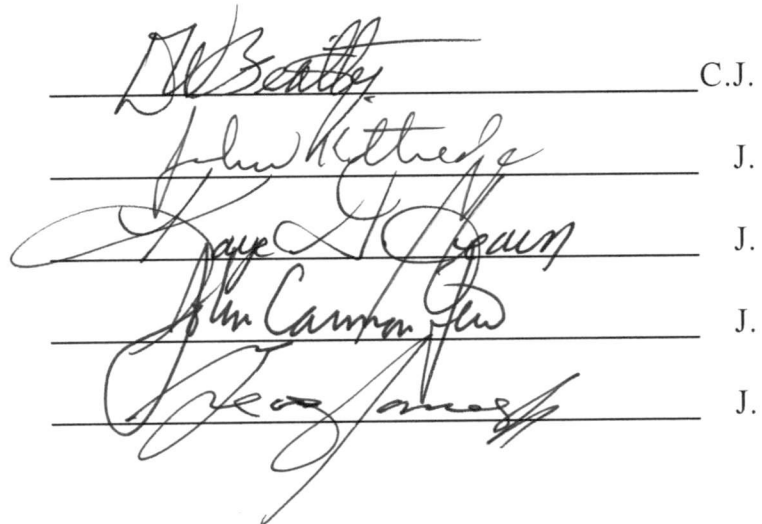 DW Beatty C.J.
John Kittredge J.
Kaye G Hearn J.
John Cannon Few J.
George James Jr J.